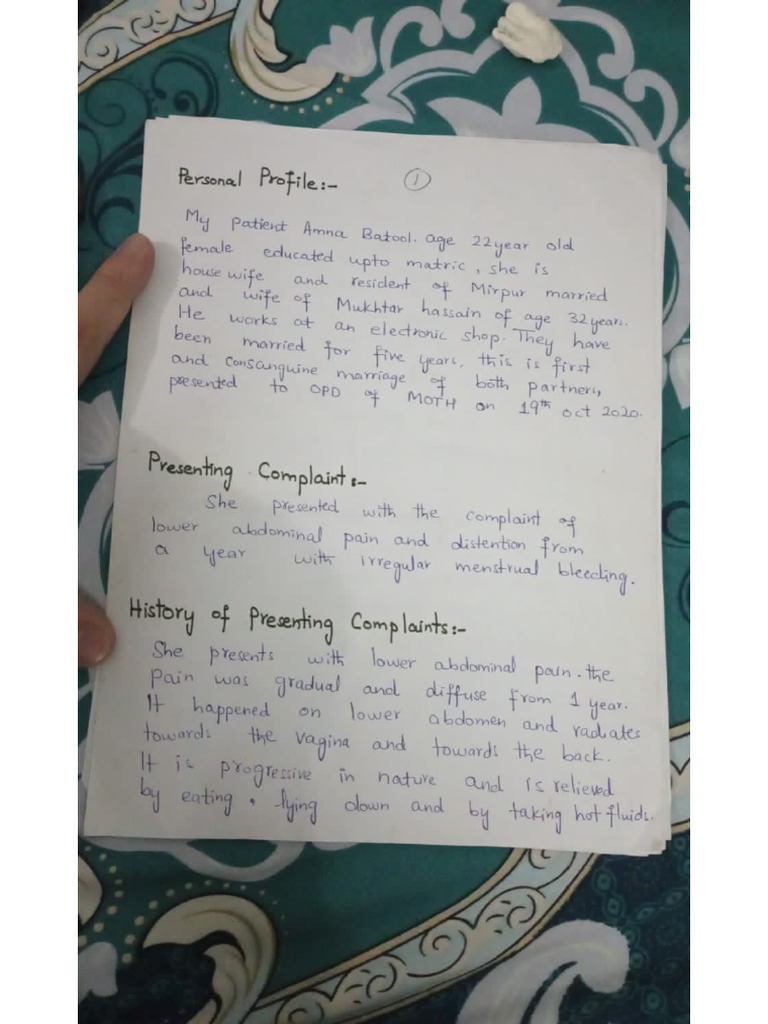 Personal Profile:- 1
My patient Amna Batool. age 22year old
female educated upto matric, she is
house wife and resident of Mirpur married
and wife of Mukhtar hassain of age 32years.
He works at an electronic shop. They have
been married for five years, this is first
and consanguine marriage of both partners,
presented to OPD of MOTH on 19th oct 2020.
Presenting Complaint:-
She presented with the complaint of
lower abdominal pain and distention from
a year with irregular menstrual bleeding.
History of Presenting Complaints:-
She presents with lower abdominal pain. the
Pain was gradual and diffuse from 1 year.
It happened on lower abdomen and radiates
towards the vagina and towards the back.
It is progressive in nature and is relieved
by eating, lying down and by taking hot fluids.